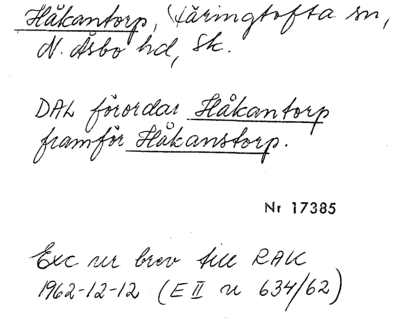 Håkantorp, Käringtofta sn,
N. Åsbo hd, Sk.
DAL förordar Håkantorp
framför Håkanstorp.
Nr 17385
Exc ur brev till RAK
1962-12-12 (E II u 634/62)